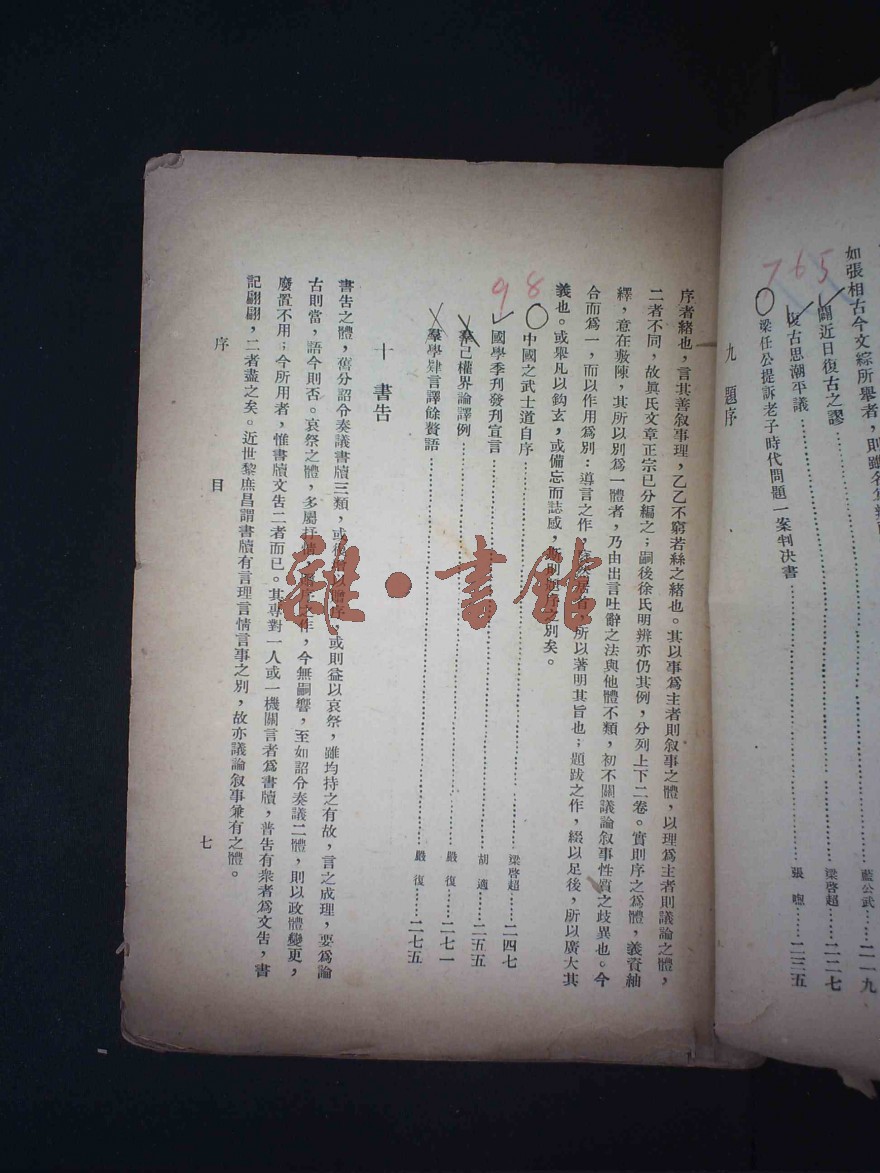 如張相古今文綜所舉者，則雖名爲
闢近日復古之謬 藍公武……二一九
復古思潮平議……梁啓超……二二七
梁任公提訴老子時代問題一案判決書……張 煦……二三五
765
九 題序
序者緒也，言其善敘事理，乙乙不窮若絲之緒也。其以事爲主者則敘事之體，以理爲主者則議論之體，
二者不同，故眞氏文章正宗已分編之；嗣後徐氏明辨亦仍其例，分列上下二卷。實則序之爲體，義資紬
繹，意在敷陳，其所以別爲一體者，乃由出言吐辭之法與他體不類，初不關議論敘事性質之歧異也。今
合而爲一，而以作用爲別：導言之作，所以著明其旨也；題跋之作，綴以足後，所以廣大其
義也。或舉凡以鈎玄，或備忘而誌感，之別矣。
98
中國之武士道自序……梁啓超……二四七
國學季刊發刊宣言……胡 適……二五五
羣己權界論譯例……嚴 復……二七一
羣學肄言譯餘贅語……嚴 復……二七五
十 書告
書告之體，舊分詔令奏議書牘三類，或，或則益以哀祭，雖均持之有故，言之成理，要爲論
古則當，語今則否。哀祭之體，多屬抒情，之作，今無嗣響，至如詔令奏議二體，則以政體變更，
廢置不用；今所用者，惟書牘文告二者而已。其專對一人或一機關言者爲書牘，普告有衆者爲文告，書
記翩翩，二者盡之矣。近世黎庶昌謂書牘有言理言情言事之別，故亦議論敘事兼有之體。
序 目 七
雜·書館